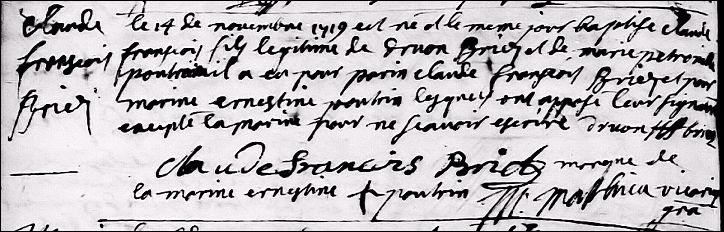 claude
françois
Briez
le 14 de novembre 1719 est né et le meme jour baptise claude
françois fils legitime de druon Briez et de marie petronile
pontrain il a eu pour parin claude françois Briez et pour
marine ernestine pontrin lesquels ont apposé leur signature
excepte la marine pour ne scavoir escrire druon briez
claude francois Briez marque de
la marine ernestine + pontrin